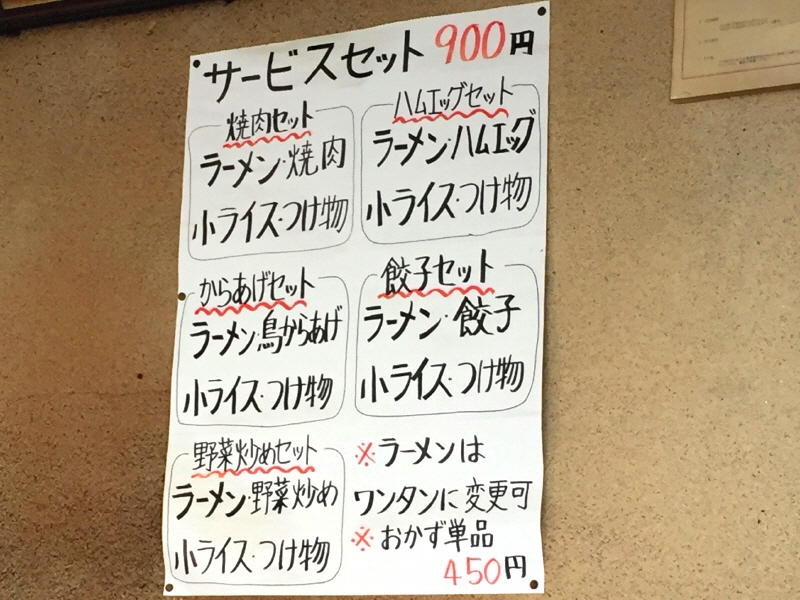 サービスセット 900円
焼肉セット
ラーメン・焼肉
小ライス・つけ物
ハムエッグセット
ラーメン・ハムエッグ
小ライス・つけ物
からあげセット
ラーメン・鳥からあげ
小ライス・つけ物
餃子セット
ラーメン・餃子
小ライス・つけ物
野菜炒めセット
ラーメン・野菜炒め
小ライス・つけ物
※ラーメンは
ワンタンに変更可
※おかず単品
450円